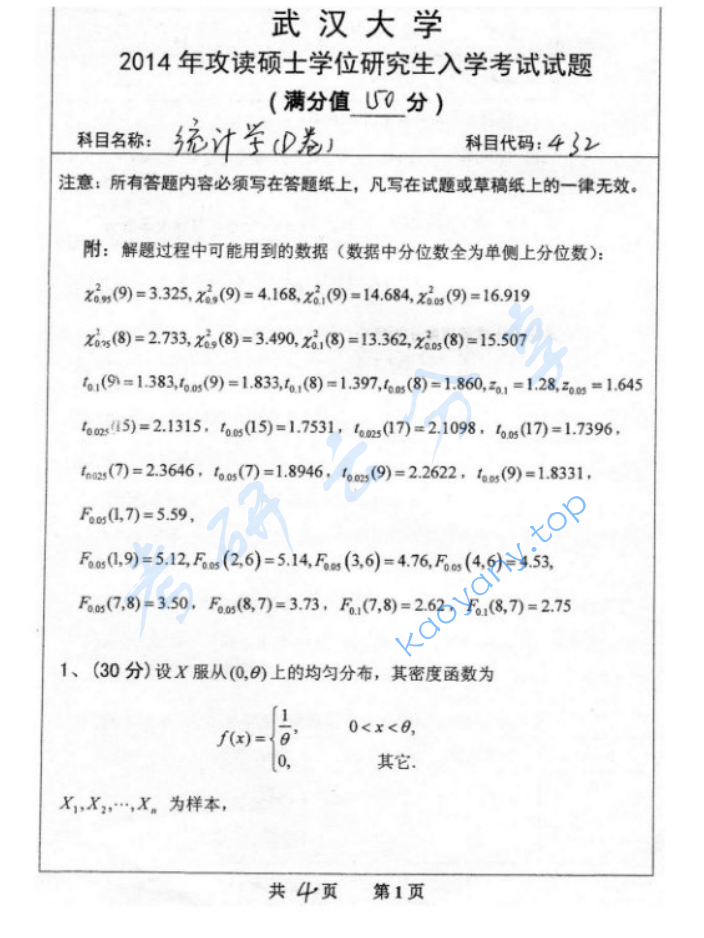 武汉大学
2014年攻读硕士学位研究生入学考试试题
(满分值 150 分)
科目名称：统计学(D卷) 科目代码：432
注意：所有答题内容必须写在答题纸上，凡写在试题或草稿纸上的一律无效。
附：解题过程中可能用到的数据（数据中分位数全为单侧上分位数）：
χ²₀.₉₅(9)=3.325, χ²₀.₉(9)=4.168, χ²₀.₁(9)=14.684, χ²₀.₀₅(9)=16.919
χ²₀.₉₅(8)=2.733, χ²₀.₉(8)=3.490, χ²₀.₁(8)=13.362, χ²₀.₀₅(8)=15.507
t₀.₁(9)=1.383, t₀.₀₅(9)=1.833, t₀.₁(8)=1.397, t₀.₀₅(8)=1.860, z₀.₁=1.28, z₀.₀₅=1.645
t₀.₀₂₅(15)=2.1315, t₀.₀₅(15)=1.7531, t₀.₀₂₅(17)=2.1098, t₀.₀₅(17)=1.7396,
t₀.₀₂₅(7)=2.3646, t₀.₀₅(7)=1.8946, t₀.₀₂₅(9)=2.2622, t₀.₀₅(9)=1.8331,
F₀.₀₅(1,7)=5.59,
F₀.₀₅(1,9)=5.12, F₀.₀₅(2,6)=5.14, F₀.₀₅(3,6)=4.76, F₀.₀₅(4,6)=4.53,
F₀.₀₅(7,8)=3.50, F₀.₀₅(8,7)=3.73, F₀.₁(7,8)=2.62, F₀.₁(8,7)=2.75
考研云分享
kaoyany.top
1、(30分)设X服从(0,θ)上的均匀分布，其密度函数为
f(x)={1/θ, 0<x<θ,
0, 其它.
X₁,X₂,⋯,Xₙ 为样本，
共 4 页 第 1 页